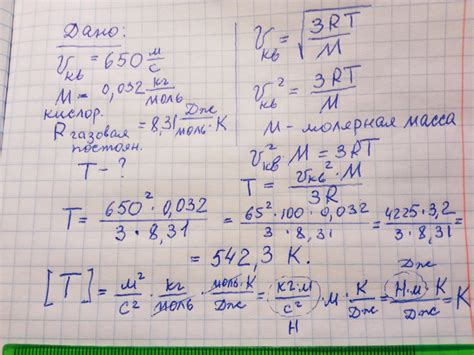 Дано:
V_кв = 650 м/с
M = 0,032 кг/моль
кислор.
R газовая постоян. = 8,31 Дж/моль·K
T - ?
V_кв = √(3RT/M)
V_кв² = 3RT/M
M - молярная масса
V_кв² M = 3RT
T = V_кв² · M / 3R
T = 650² · 0,032 / 3 · 8,31 = 65² · 100 · 0,032 / 3 · 8,31 = 4225 · 3,2 / 3 · 8,31 =
= 542,3 K.
[T] = м²/с² · кг/моль · моль·K/Дж = кг·м/с² · м · K/Дж = Н·м · K/Дж = K
Н
Дж